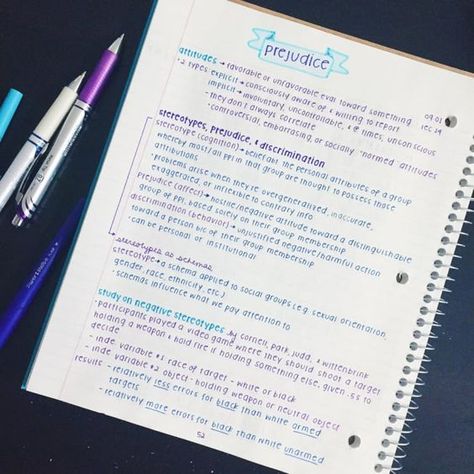 prejudice
09.01
lec 14
attitudes → favorable or unfavorable eval toward something
• 2 types: explicit → consciously aware of & willing to report
implicit → involuntary, uncontrollable, & @ times, unconscious
- they don't always correlate
• controversial, embarrassing or socially "normed" attitudes
stereotypes, prejudice, & discrimination
stereotype (cognition) → belief abt the personal attributes of a group
whereby most/all ppl in that group are thought to possess those
attributions
• problems arise when they're overgeneralized, inaccurate,
exaggerated, or inflexible to contrary info
prejudice (affect) → hostile/negative attitude toward a distinguishable
group of ppl, based solely on their group membership
discrimination (behavior) → unjustified negative/harmful action
toward a person b/c of their group membership
• can be personal or institutional
stereotypes as schemas
stereotype → a schema applied to social groups (e.g. sexual orientation,
gender, race, ethnicity, etc.)
• schemas influence what we pay attention to
study on negative stereotypes - by correll, park, judd, & wittenbrink
• participants played a video game where they should shoot a target
holding a weapon & hold fire if holding something else, given .5s to
decide
- inde variable #1: race of target - white or black
- inde variable #2 object - holding weapon or neutral object
results - relatively less errors for black than white armed
targets
- relatively more errors for black than white unarmed
52